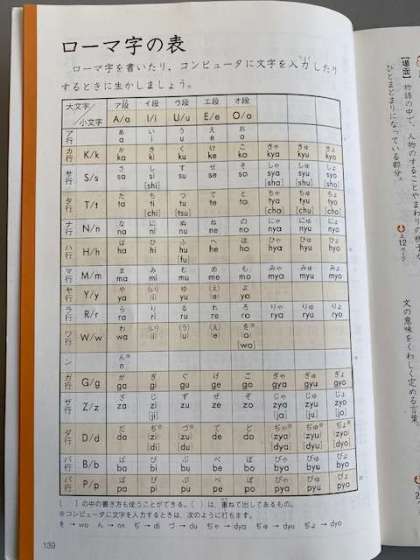 ローマ字の表
ローマ字を書いたり、コンピュータに文字を入力したり
するときに生かしましょう。
大文字/小文字 ア段 A/a イ段 I/i ウ段 U/u エ段 E/e オ段 O/o
ア行 あ a い i う u え e お o
カ行 K/k か ka き ki く ku け ke こ ko きゃ kya きゅ kyu きょ kyo
サ行 S/s さ sa し si [shi] す su せ se そ so しゃ sya [sha] しゅ syu [shu] しょ syo [sho]
タ行 T/t た ta ち ti [chi] つ tu [tsu] て te と to ちゃ tya [cha] ちゅ tyu [chu] ちょ tyo [cho]
ナ行 N/n な na に ni ぬ nu ね ne の no にゃ nya にゅ nyu にょ nyo
ハ行 H/h は ha ひ hi ふ hu [fu] へ he ほ ho ひゃ hya ひゅ hyu ひょ hyo
マ行 M/m ま ma み mi む mu め me も mo みゃ mya みゅ myu みょ myo
ヤ行 Y/y や ya (い) (i) ゆ yu (え) (e) よ yo
ラ行 R/r ら ra り ri る ru れ re ろ ro りゃ rya りゅ ryu りょ ryo
ワ行 W/w わ wa (い) (i) (う) (u) (え) (e) を o [wo]
ン ん n
ガ行 G/g が ga ぎ gi ぐ gu げ ge ご go ぎゃ gya ぎゅ gyu ぎょ gyo
ザ行 Z/z ざ za じ zi [ji] ず zu ぜ ze ぞ zo じゃ zya [ja] じゅ zyu [ju] じょ zyo [jo]
ダ行 D/d だ da ぢ (zi) [di] づ (zu) [du] で de ど do ぢゃ (zya) [dya] ぢゅ (zyu) [dyu] ぢょ (zyo) [dyo]
バ行 B/b ば ba び bi ぶ bu べ be ぼ bo びゃ bya びゅ byu びょ byo
パ行 P/p ぱ pa ぴ pi ぷ pu ぺ pe ぽ po ぴゃ pya ぴゅ pyu ぴょ pyo
[ ]の中の書き方も使うことができる。( )は、重ねて出してあるもの。
※コンピュータに文字を入力するときは、次のように打ちます。
を → wo ん → nn ぢ → di づ → du ぢゃ → dya ぢゅ → dyu ぢょ → dyo
139
文の意味をくわしく定める言葉。
ひとまとまりになっている部分。